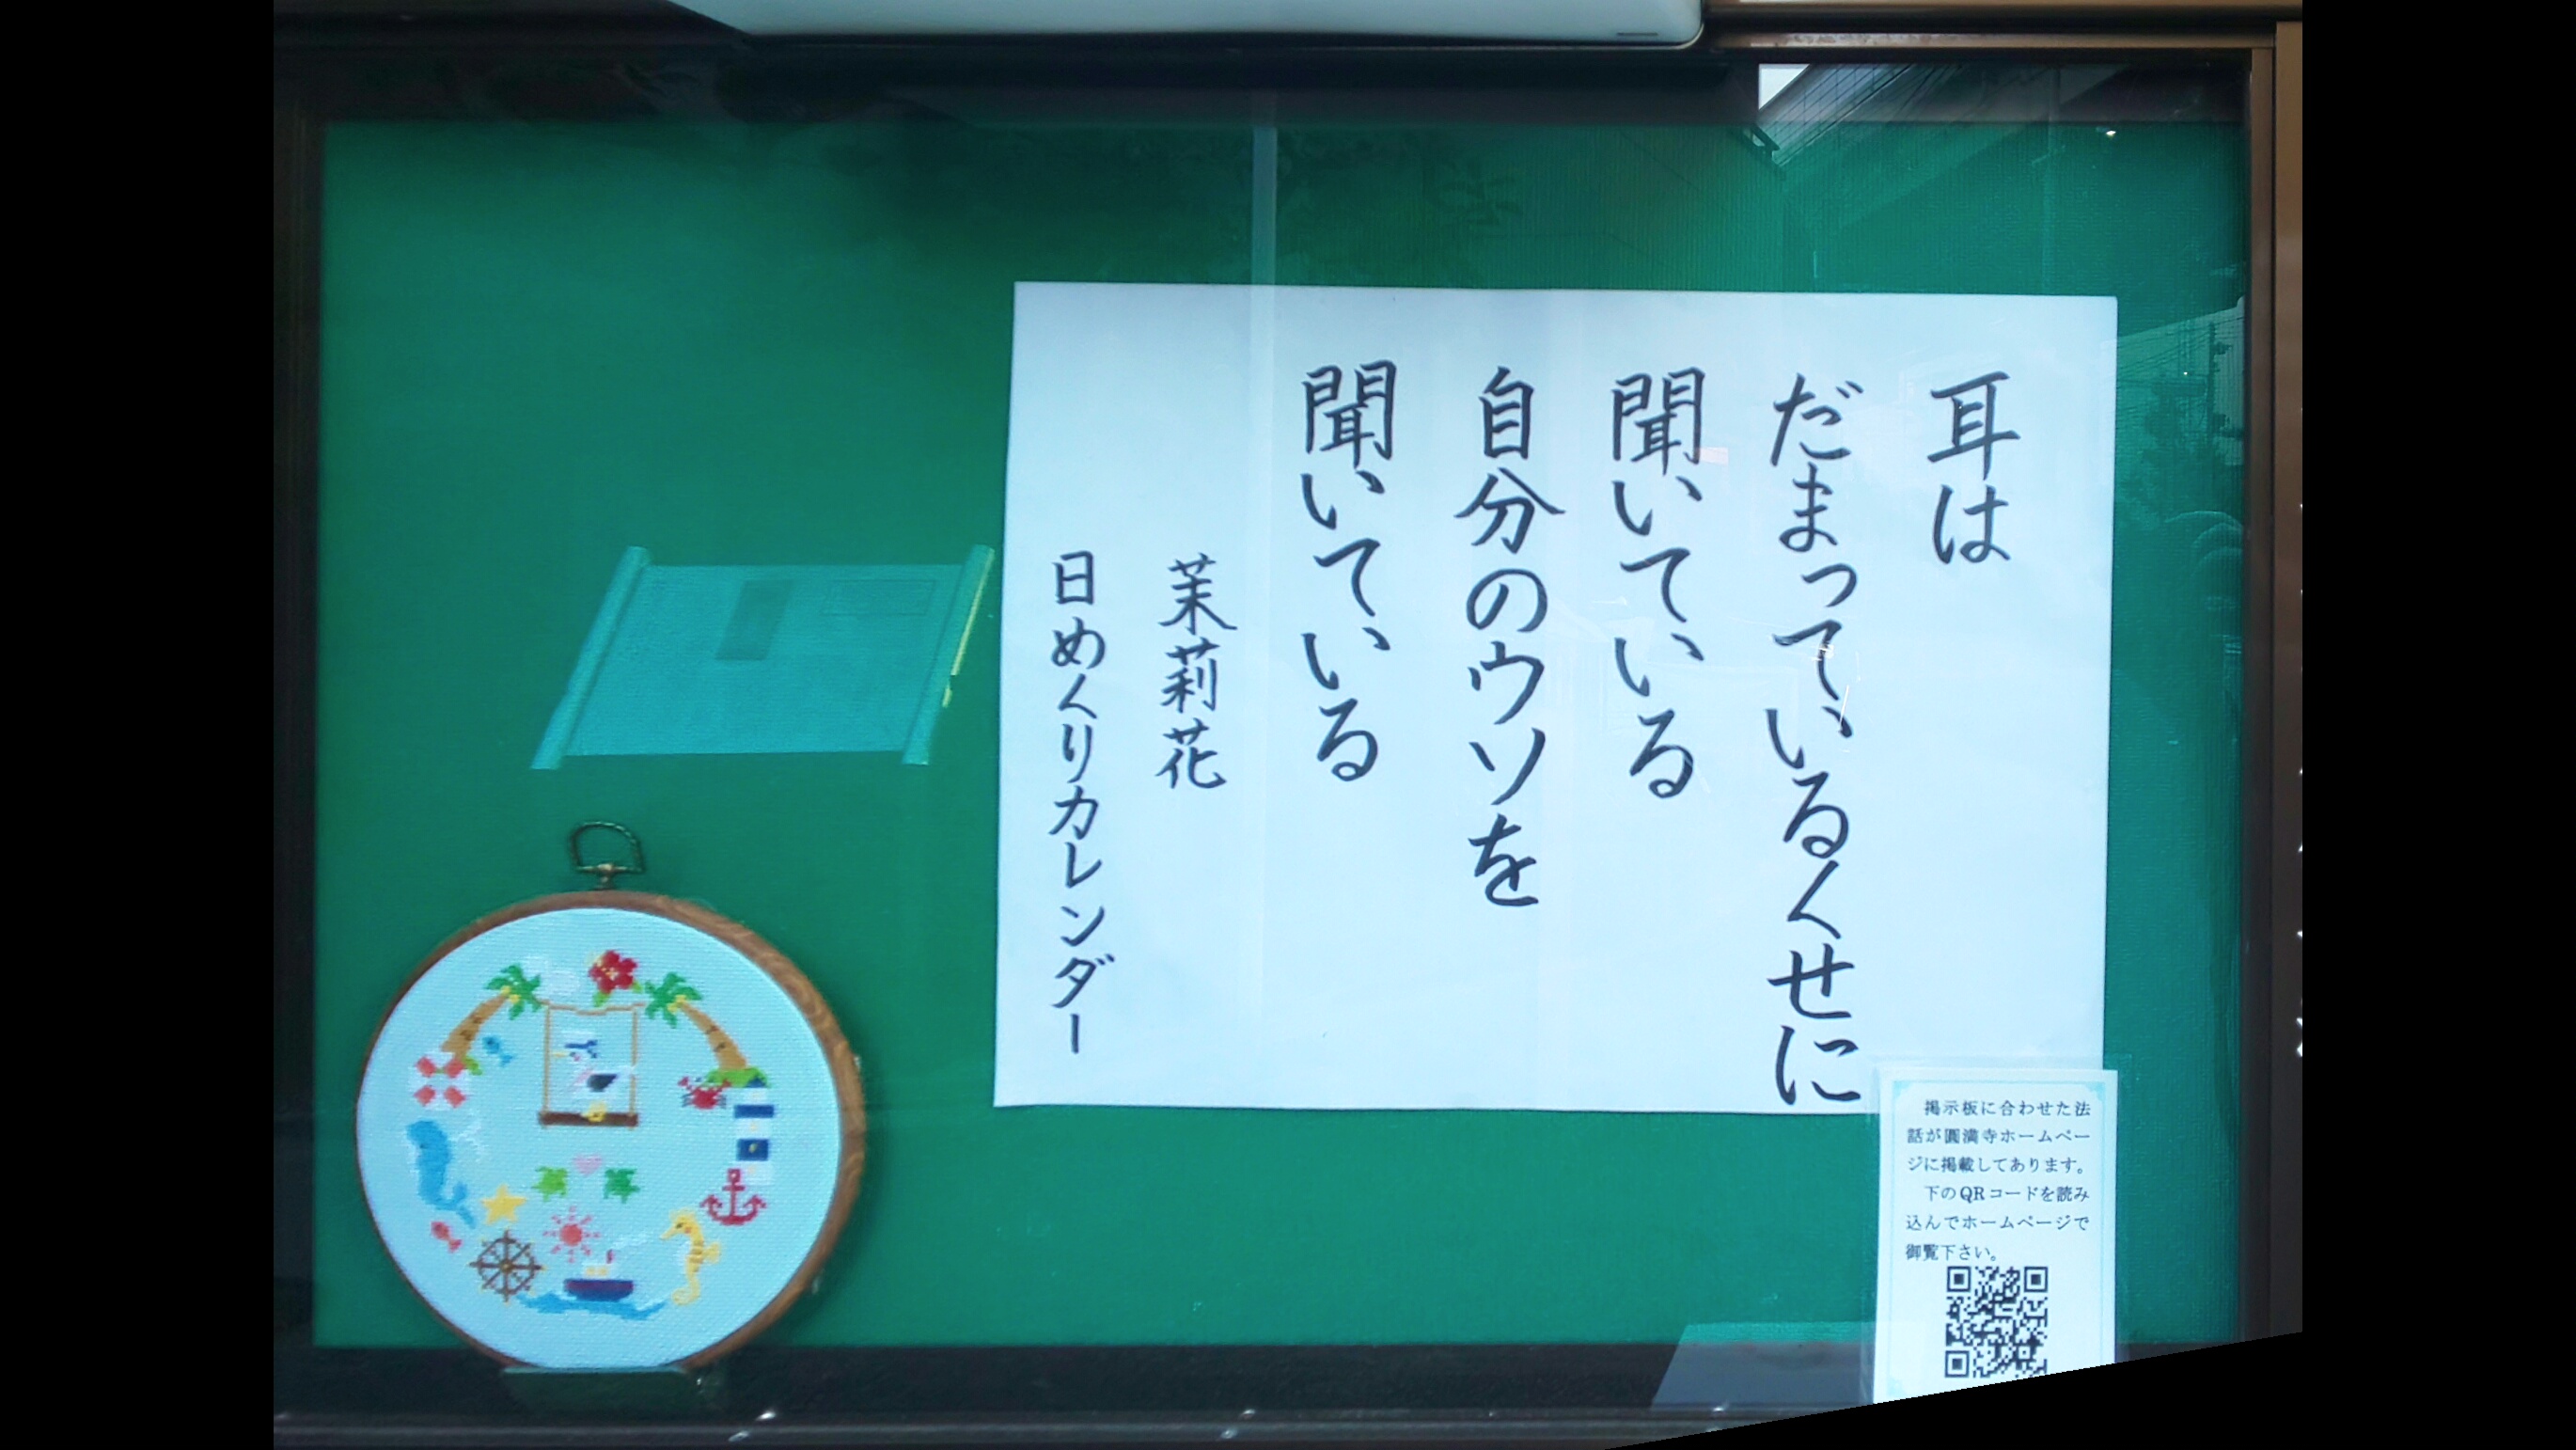 耳は
だまっているくせに
聞いている
自分のウソを
聞いている
茉莉花
日めくりカレンダー
掲示板に合わせた法
話が圓満寺ホームペー
ジに掲載してあります。
下のQRコードを読み
込んでホームページで
御覧下さい。